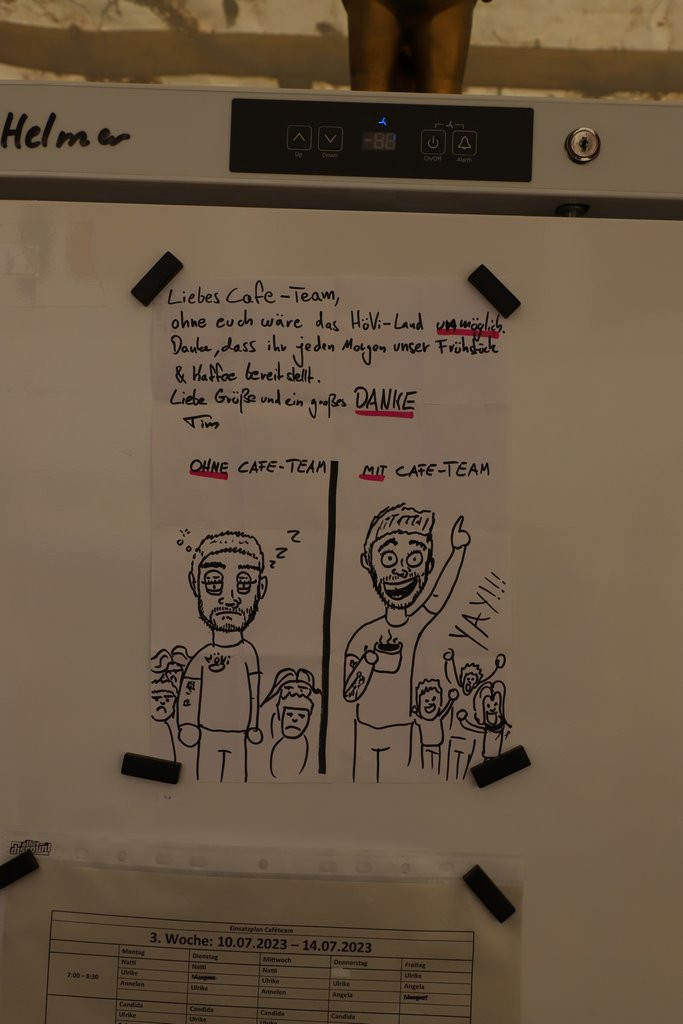 Helmer
Up
Down
On/Off
Alarm
Liebes Cafe-Team,
ohne euch wäre das HöVi-Land unmöglich.
Danke, dass ihr jeden Morgen unser Frühstück
& Kaffee bereit stellt.
Liebe Grüße und ein großes DANKE
Tim
OHNE CAFE-TEAM
MIT CAFE-TEAM
z z z
YAY!!!
HöVi
discount
Einsatzplan Caféteam
3. Woche: 10.07.2023 – 14.07.2023
Montag Dienstag Mittwoch Donnerstag Freitag
7:00 – 8:30
Natti Natti Natti Ulrike Ulrike
Ulrike Ulrike Ulrike Angela
Annelen Ulrike Annelen Angela
Candida Candida Candida Candida
Ulrike Ulrike Ulrike